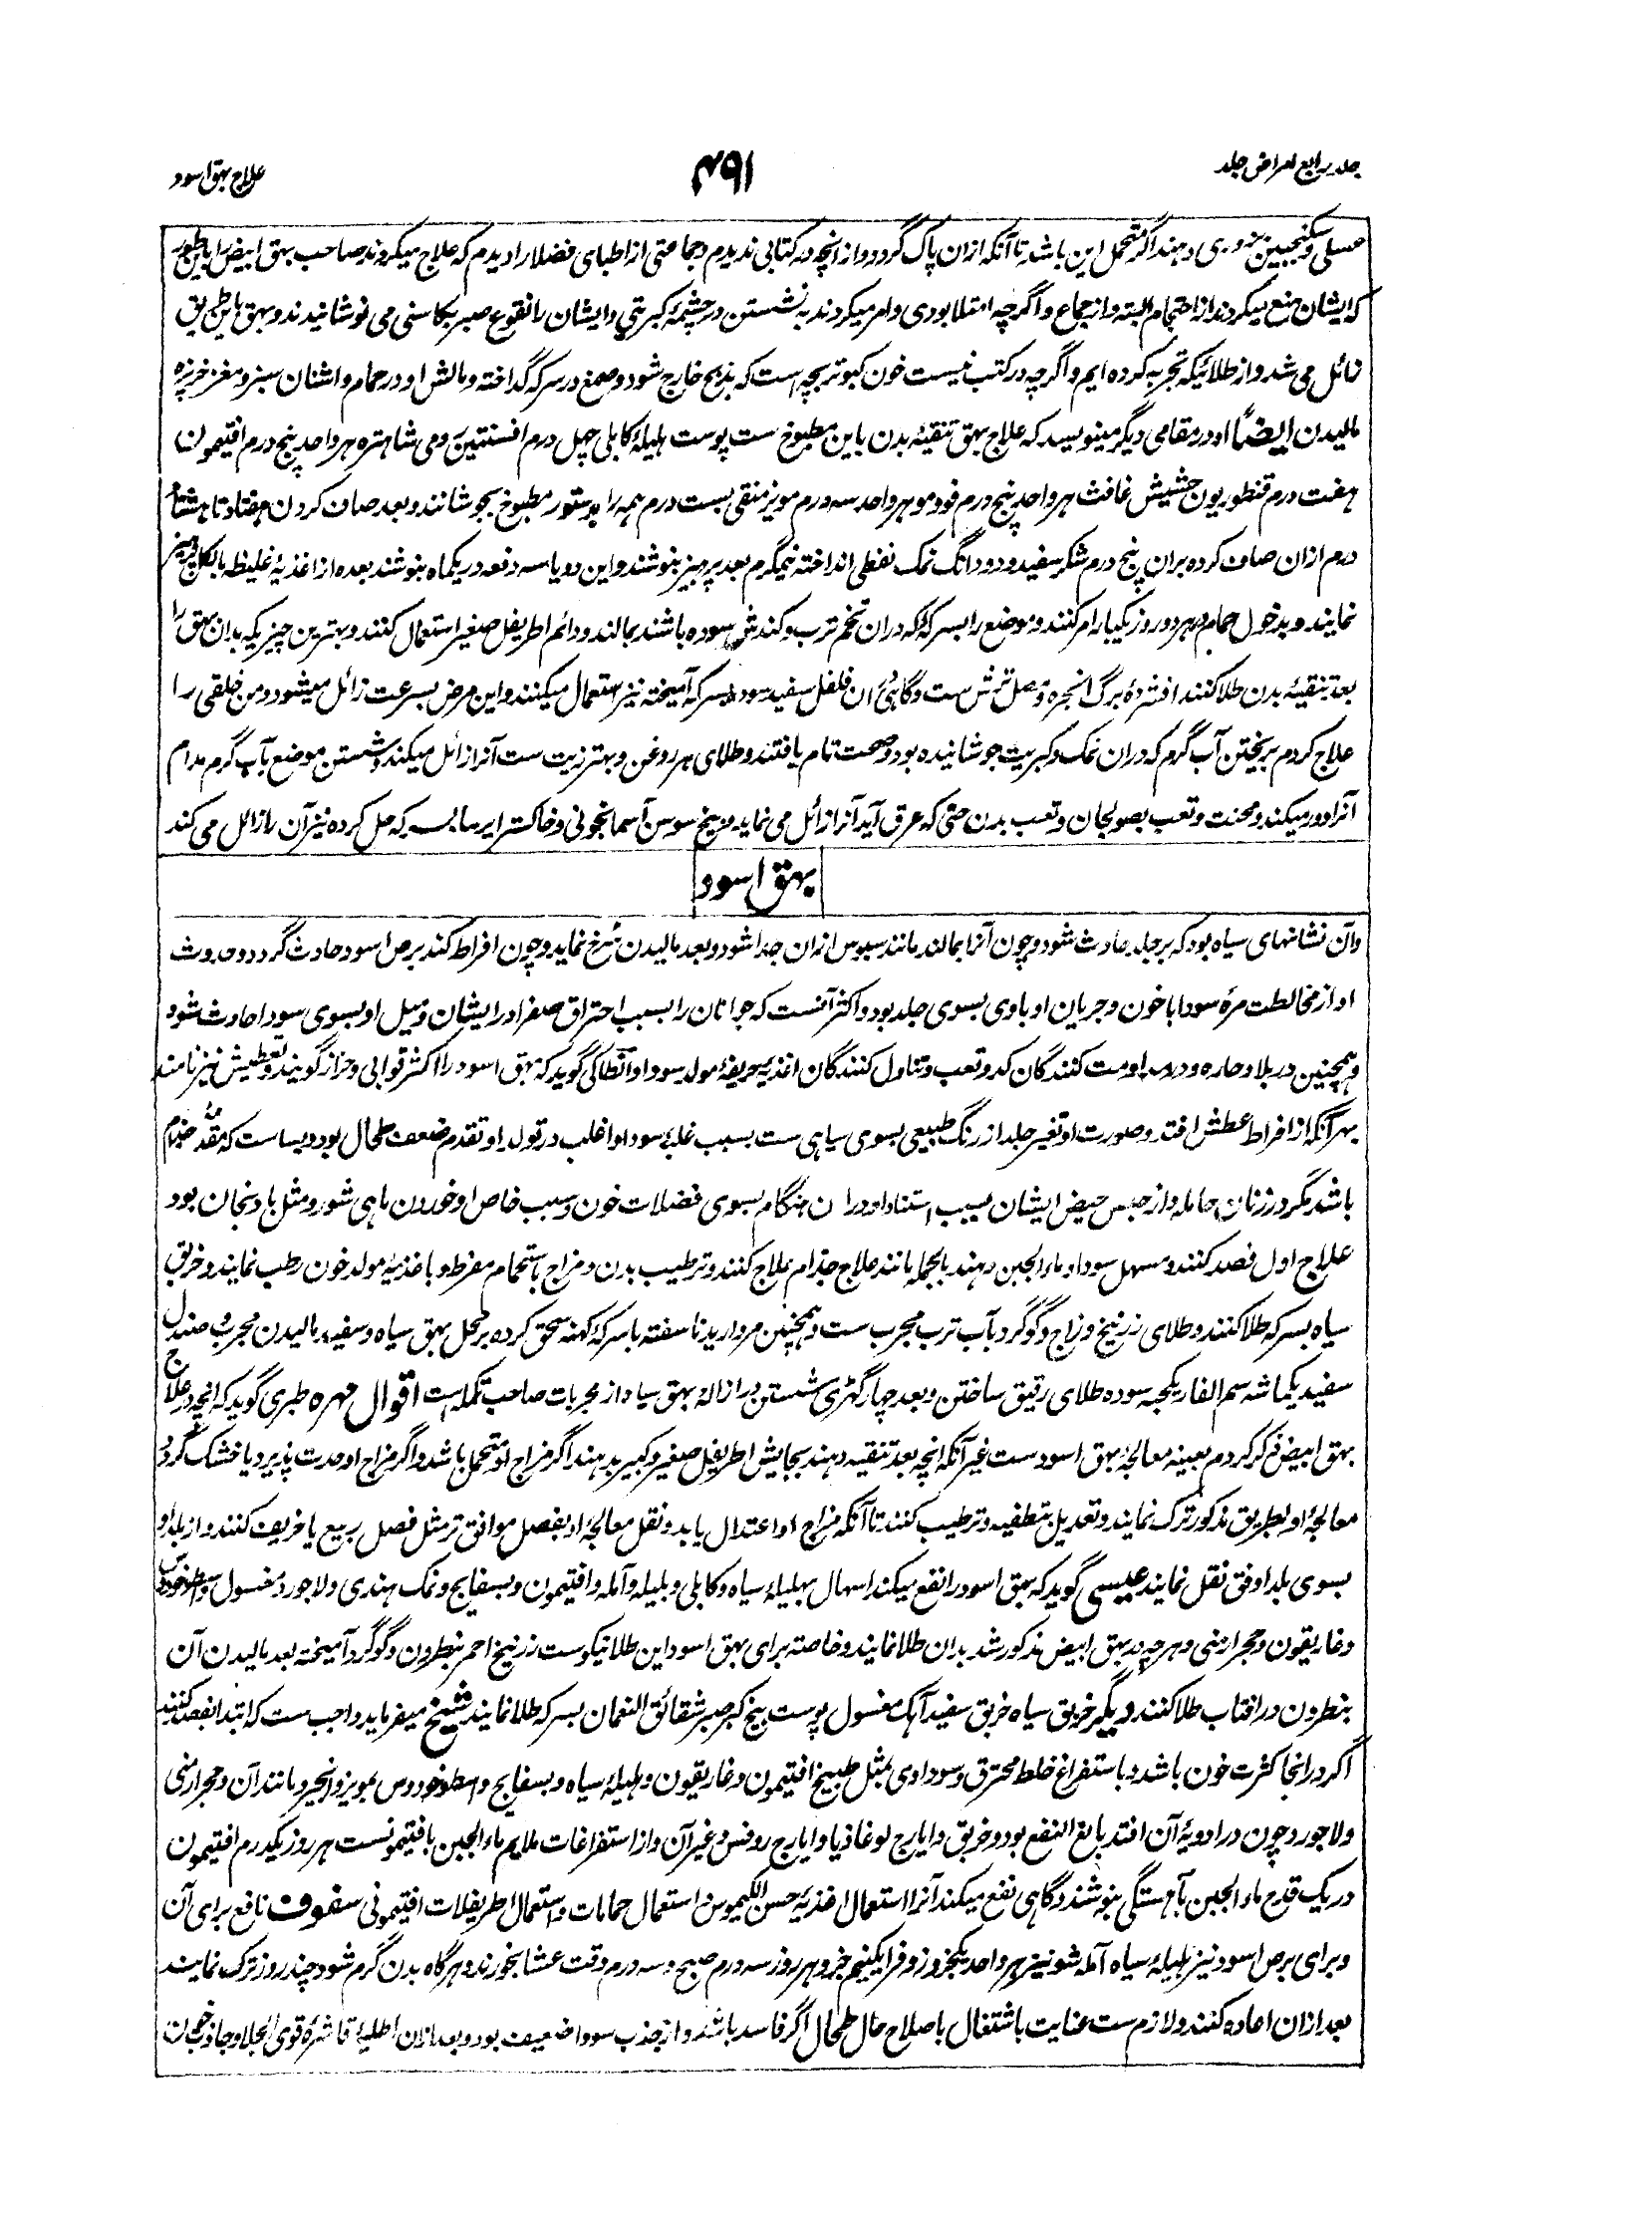 جلد رابع امراض جلد
۴۹۱
علاج بهق اسود
عسلی و سکنجبین بزوری دهند اگر متحمل این باشد تا آنکه ازان پاک گردد و از انچه در کتابی ندیدم و جماعتی از اطبای فضلا را دیدم که علاج میکردند صاحب بهق ابیض را باین طور
که ایشان منع میکردند از احتجام البته و از جماع و اگرچه امتلا بودی و امر میکردند به نشستن در چشمهٔ کبریتی و ایشان را نقوع صبر بکاسنی می نوشانیدند و بهق باین طریق
زائل می شد و از طلائیکه تجربه کرده ایم و اگرچه در کتب نیست خون کبوتر بچه است که بذبح خارج شود و صمغ در سرکه گداخته و مالش او در حمام و اشنان سبز و مغز خرپزه
مالیدن ایضاً او در مقامی دیگر مینویسد که علاج بهق تنقیهٔ بدن باین مطبوخ ست پوست هلیلهٔ کابلی چهل درم افسنتین رومی شاهتره هر واحد پنج درم افتیمون
هفت درم قنطوریون حشیش غافث هر واحد پنج درم فوه مو هر واحد سه درم مویز منقی بست درم همه را بدستور مطبوخ بجوشانند و بعد صاف کردن هفتاد تا هشتاد
درم ازان صاف کرده بران پنج درم شکر سفید و دو دانگ نمک نفطی انداخته نیمگرم بعد پرهیز بنوشند و این دو یا سه دفعه در یکماه بنوشند بعده از اغذیهٔ غلیظه بالکل پرهیز
نمایند و بدخول حمام هر دو روز یکبار امر کنند و موضع را بسرکه که دران تخم ترب و کندش سوده باشند بمالند و دائم اطریفل صغیر استعمال کنند و بهترین چیزیکه بدان بهق را
بعد تنقیهٔ بدن طلا کنند افشردهٔ برگ انجره و بصل ترش ست و گاهی ازان فلفل سفید سوده بسرکه آمیخته نیز استعمال میکنند و این مرض بسرعت زائل میشود و من خلقی را
علاج کردم بریختن آب گرم که دران نمک و کبریت جوشانیده بود و صحت تام یافتند و طلای هر روغن و بهتر زیت ست آنرا زائل میکند و شستن موضع بآب گرم مدام
آنرا دور میکند و محنت و تعب بصولجان و تعب بدن حتی که عرق آید آنرا زائل می نماید و بیخ سوسن آسمانجونی و خاکستر ایرسا بسرکه حل کرده نیز آن را زائل می کند
بهق اسود
و آن نشانهای سیاه بود که بر جلد حادث شود و چون آنرا بمالند مانند سبوس ازان جدا شود و بعد مالیدن سرخ نماید و چون افراط کند برص اسود حادث گردد و حدوث
او از مخالطت مرهٔ سودا با خون و جریان او باوی بسوی جلد بود و اکثر آنست که جوانان را بسبب احتراق صفرا در ایشان و میل او بسوی سودا حادث شود
و همچنین در بلاد حاره و در مداومت کنندگان کد و تعب و تناول کنندگان اغذیهٔ حریفهٔ مولد سودا و انطاکی گوید که بهق اسود را اکثر قوابی و حزاز گویند و تعطیش نیز نامند
بهر آنکه از افراط عطش افتد و صورت او تغیر جلد از رنگ طبیعی بسوی سیاهی ست بسبب غلبهٔ سودا و اغلب در تولد او تقدم ضعف طحال بود و بسا ست که مقدمهٔ جذام
باشد مگر در زنان حامله و از حبس حیض ایشان بسبب استناد او دران هنگام بسوی فضلات خون و سبب خاص او خوردن ماهی شور و مثل بادنجان بود
علاج اول فصد کنند و مسهل سودا و ماء الجبن دهند بالجمله مانند علاج جذام علاج کنند و ترطیب بدن و مزاج باستحمام مفرط و باغذیهٔ مولد خون رطب نمایند و خربق
سیاه بسرکه طلا کنند و طلای زرنیخ و زاج و گوگرد بآب ترب مجرب ست و همچنین مروارید ناسفته با سرکه کهنه سحق کرده بر محل بهق سیاه و سفید مالیدن مجرب و صندل
سفید یکماشه سم الفار یکحبه سوده طلای رقیق ساختن و بعد چهار گهڑی شستن در ازالهٔ بهق سیاه از مجربات صاحب تکمله است اقوال مهره طبری گوید که انچه در علاج
بهق ابیض ذکر کردم بعینه معالجهٔ بهق اسود ست غیر آنکه انچه بعد تنقیه دهند بجایش اطریفل صغیر و کبیر بدهند اگر مزاج او متحمل باشد و اگر مزاج او حدت پذیرد یا خشک گردد
معالجهٔ او بطریق مذکور ترک نمایند و تعدیل بتطفیه و ترطیب کنند تا آنکه مزاج او اعتدال یابد و نقل معالجهٔ او بفصل موافق تر مثل فصل ربیع یا خریف کنند و از بلد او
بسوی بلد اوفق نقل نمایند عیسی گوید که بهق اسود را نفع میکند اسهال بهلیلهٔ سیاه و کابلی و بلیله و آمله و افتیمون و بسفایج و نمک هندی و لاجورد مغسول و اسطوخودوس
و غاریقون و حجر ارمنی و هرچه در بهق ابیض مذکور شد بدان طلا نمایند و خاصة برای بهق اسود این طلا نیکوست زرنیخ احمر بنطرون و گوگرد آمیخته بعد مالیدن آن
بنطرون در افتاب طلا کنند دیگر خربق سیاه خربق سفید آهک مغسول پوست بیخ کبر صبر شقائق النعمان بسرکه طلا نمایند شیخ میفرماید واجب ست که ابتدا بفصد کنند
اگر در انجا کثرت خون باشد و باستفراغ خلط محترق و سوداوی بمثل طبیخ افتیمون و غاریقون و هلیلهٔ سیاه و بسفایج و اسطوخودوس بمویز و انجیر و مانند آن و حجر ارمنی
و لاجورد چون در ادویهٔ آن افتد بالغ النفع بود و خربق و ایارج لوغاذیا و ایارج روفس و غیر آن و از استفراغات ملایم ماء الجبن بافتیمونست هر روز یکدرم افتیمون
در یک قدح ماء الجبن بآهستگی بنوشند و گاهی نفع میکند آنرا استعمال اغذیهٔ حسن الکیموس و استعمال حمامات و استعمال اطریفلات افتیمونی سفوف نافع برای آن
و برای برص اسود نیز هلیلهٔ سیاه آمله شونیز هر واحد یکجزو زوفرا یکنیم جزو هر روز سه درم صبح و سه درم وقت عشا بخورند و هرگاه بدن گرم شود چند روز ترک نمایند
بعد ازان اعاده کنند و لازم ست عنایت باشتغال باصلاح حال طحال اگر فاسد باشد و از جذب سودا ضعیف بود و بعد ازان اطلیهٔ قاشرهٔ قوی الجلا و جاذب خون